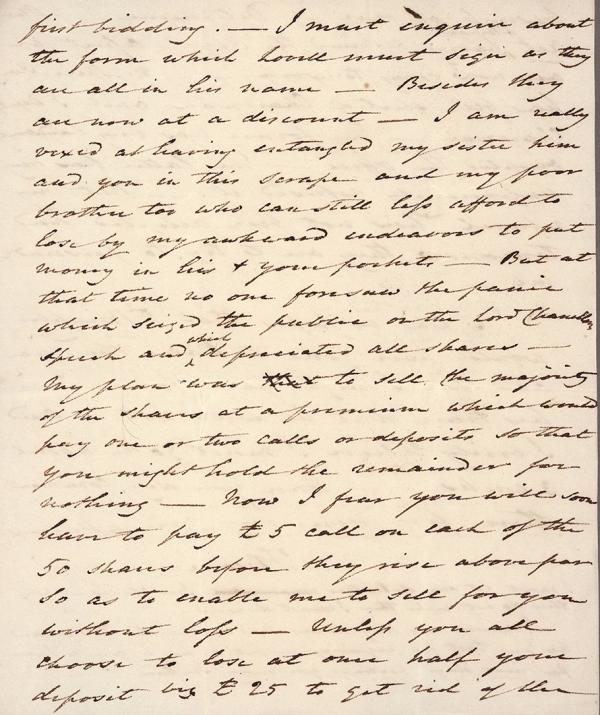 first bidding. — I must enquire about
the form which hoole must sign as they
are all in his name — Besides they
are now at a discount — I am really
vexed at having entangled my sister him
and you in this scrape and my poor
brother too who can still less afford to
lose by my awkward endeavors to put
money in his & your pockets — But at
that time no one foresaw the panic
which seized the public on the Lord Chancellors
speech and which depreciated all shares —
My plan was that to sell the majority
of the shares at a premium which would
pay one or two calls or deposits so that
you might hold the remainder for
nothing — Now I fear you will soon
have to pay £5 call on each of the
50 shares before they rise above par
so as to enable me to sell for you
without loss — Unless you all
choose to lose at once half your
deposit viz £25 to get rid of the